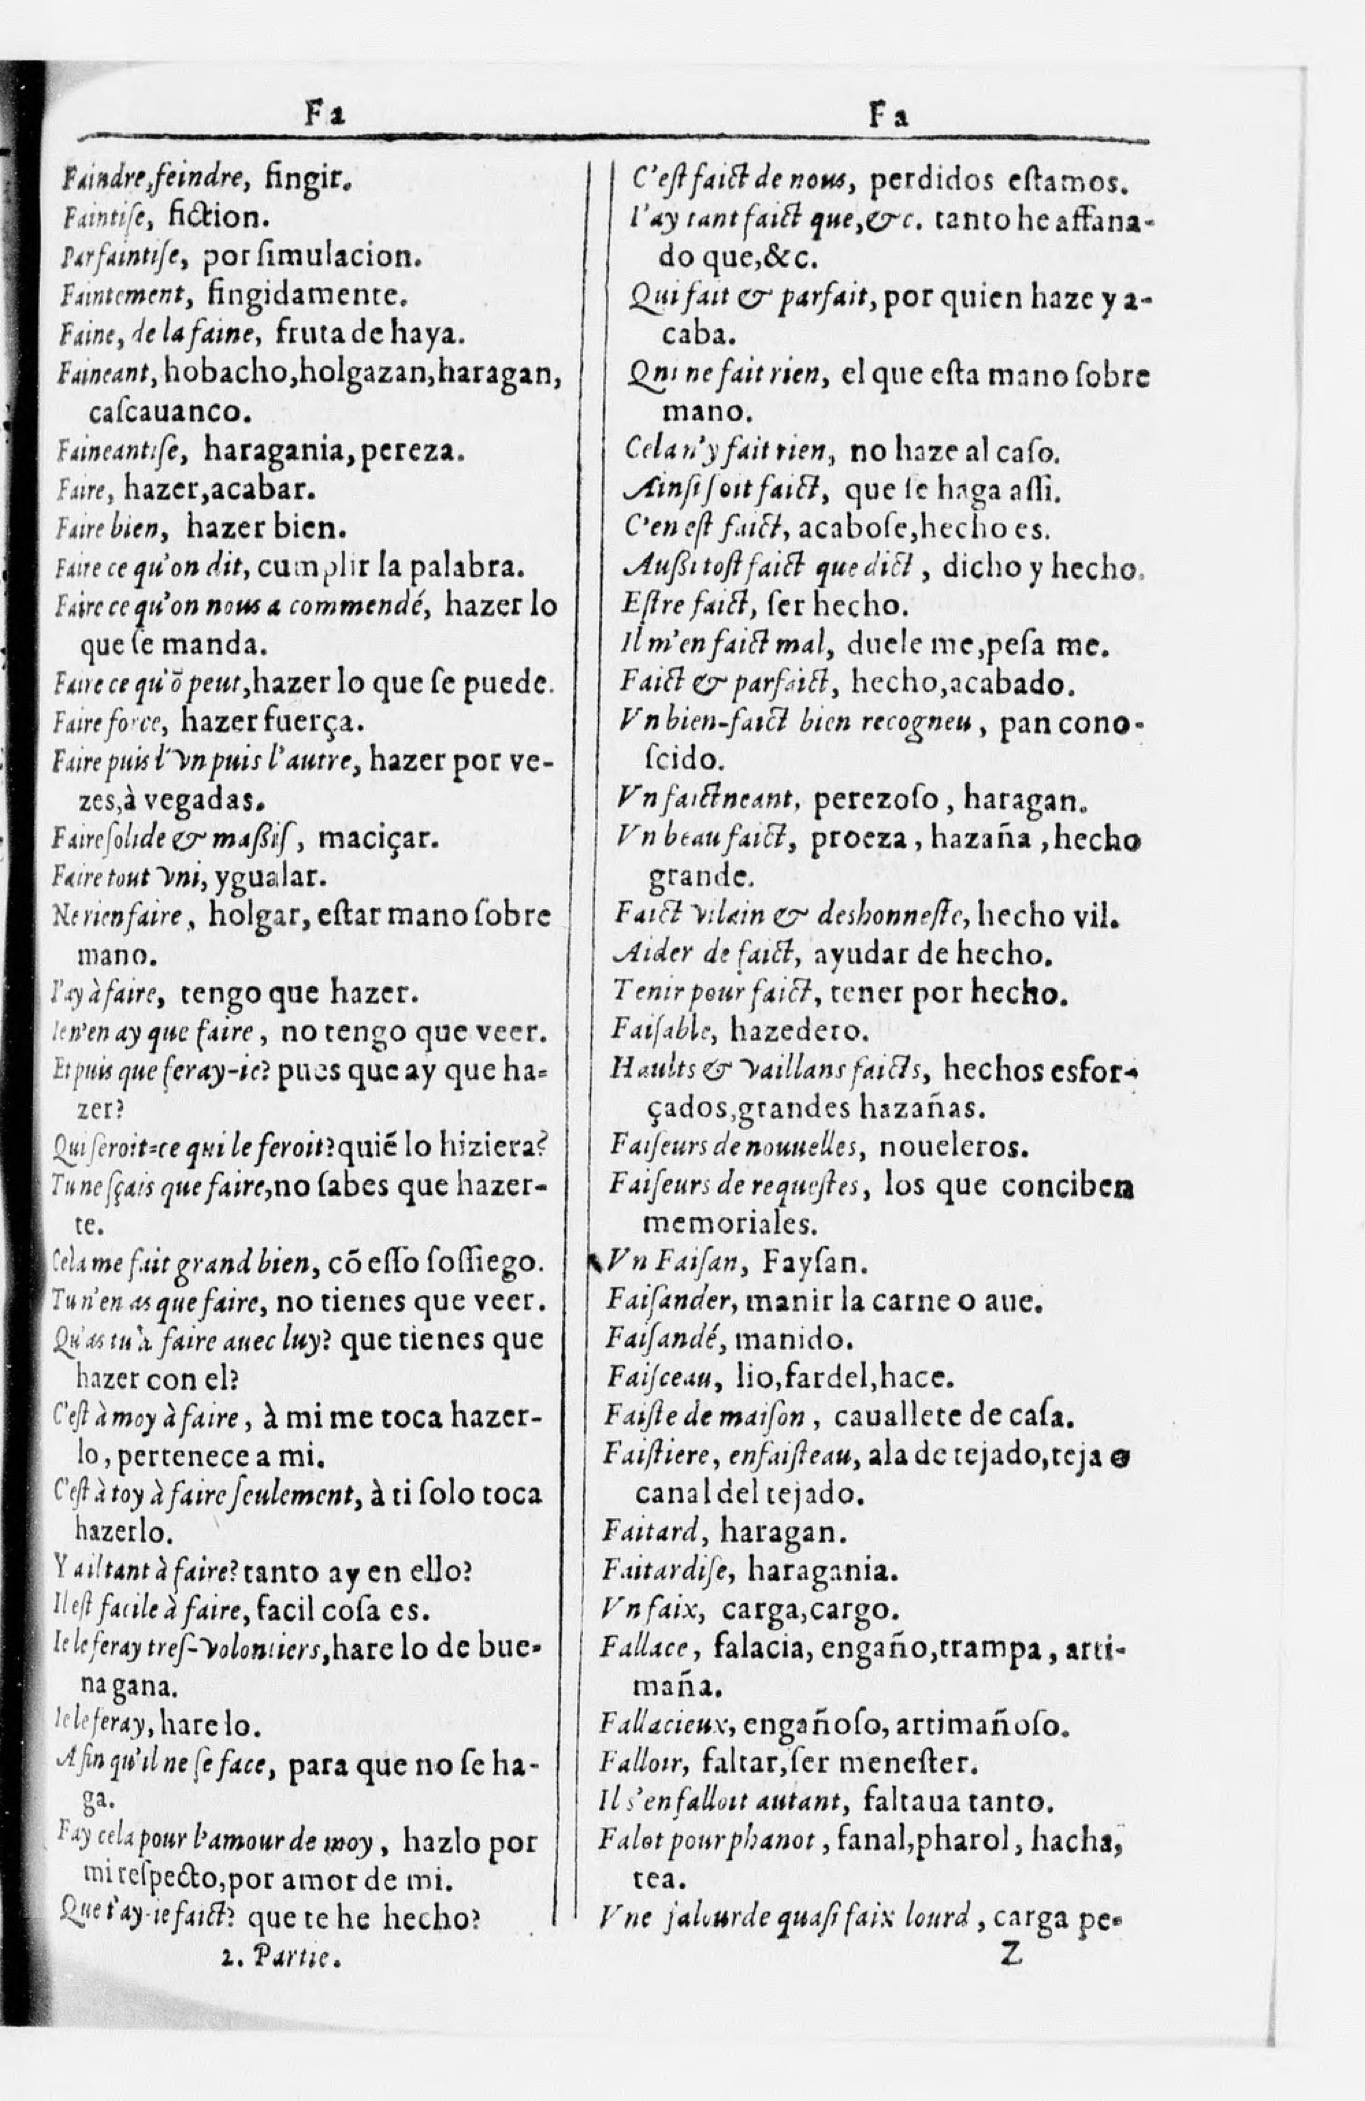 Fa
Faindre, feindre, fingir.
Faintiſe, fiction.
Par faintiſe, por ſimulacion.
Faintement, fingidamente.
Faine, de la faine, fruta de haya.
Faineant, hobacho, holgazan, haragan,
caſcauanco.
Faineantiſe, haragania, pereza.
Faire, hazer, acabar.
Faire bien, hazer bien.
Faire ce qu'on dit, cumplir la palabra.
Faire ce qu'on nous a commendé, hazer lo
que ſe manda.
Faire ce qu'õ peut, hazer lo que ſe puede.
Faire force, hazer fuerça.
Faire puis l'vn puis l'autre, hazer por ve-
zes, à vegadas.
Faire ſolide & maßiſ, maciçar.
Faire tout vni, ygualar.
Ne rien faire, holgar, eſtar mano ſobre
mano.
I'ay à faire, tengo que hazer.
Ie n'en ay que faire, no tengo que veer.
Et puis que feray-ie? pues que ay que ha-
zer?
Qui ſeroit-ce qui le feroit? quiẽ lo hiziera?
Tu ne ſçais que faire, no ſabes que hazer-
te.
Cela me fait grand bien, cõ eſſo ſoſſiego.
Tu n'en as que faire, no tienes que veer.
Qu'as tu à faire auec luy? que tienes que
hazer con el?
C'eſt à moy à faire, à mi me toca hazer-
lo, pertenece a mi.
C'eſt à toy à faire ſeulement, à ti ſolo toca
hazerlo.
Y a il tant à faire? tanto ay en ello?
Il eſt facile à faire, facil coſa es.
Ie le feray treſ-volontiers, hare lo de bue-
na gana.
Ie le feray, hare lo.
A fin qu'il ne ſe face, para que no ſe ha-
ga.
Fay cela pour l'amour de moy, hazlo por
mi reſpecto, por amor de mi.
Que t'ay-ie faict? que te he hecho?
2. Partie.
Fa
C'eſt faict de nous, perdidos eſtamos.
I'ay tant faict que, &c. tanto he affana-
do que, &c.
Qui fait & parfait, por quien haze y a-
caba.
Qui ne fait rien, el que eſta mano ſobre
mano.
Cela n'y fait rien, no haze al caſo.
Ainſi ſoit faict, que ſe haga aſſi.
C'en eſt faict, acaboſe, hecho es.
Außi toſt faict que dict, dicho y hecho.
Eſtre faict, ſer hecho.
Il m'en faict mal, duele me, peſa me.
Faict & parfaict, hecho, acabado.
Vn bien-faict bien recogneu, pan cono-
ſcido.
Vn faictneant, perezoſo, haragan.
Vn beau faict, proeza, hazaña, hecho
grande.
Faict vilain & deshonneſte, hecho vil.
Aider de faict, ayudar de hecho.
Tenir pour faict, tener por hecho.
Faiſable, hazedero.
Haults & vaillans faicts, hechos esfor-
çados, grandes hazañas.
Faiſeurs de nouuelles, noueleros.
Faiſeurs de requeſtes, los que conciben
memoriales.
Vn Faiſan, Fayſan.
Faiſander, manir la carne o aue.
Faiſandé, manido.
Faiſceau, lio, fardel, hace.
Faiſte de maiſon, cauallete de caſa.
Faiſtiere, enfaiſteau, ala de tejado, teja o
canal del tejado.
Faitard, haragan.
Faitardiſe, haragania.
Vn faix, carga, cargo.
Fallace, falacia, engaño, trampa, arti-
maña.
Fallacieux, engañoſo, artimañoſo.
Falloir, faltar, ſer meneſter.
Il s'en falloit autant, faltaua tanto.
Falot pour phanot, fanal, pharol, hacha,
tea.
Vne jalourde quaſi faix lourd, carga pe-
Z